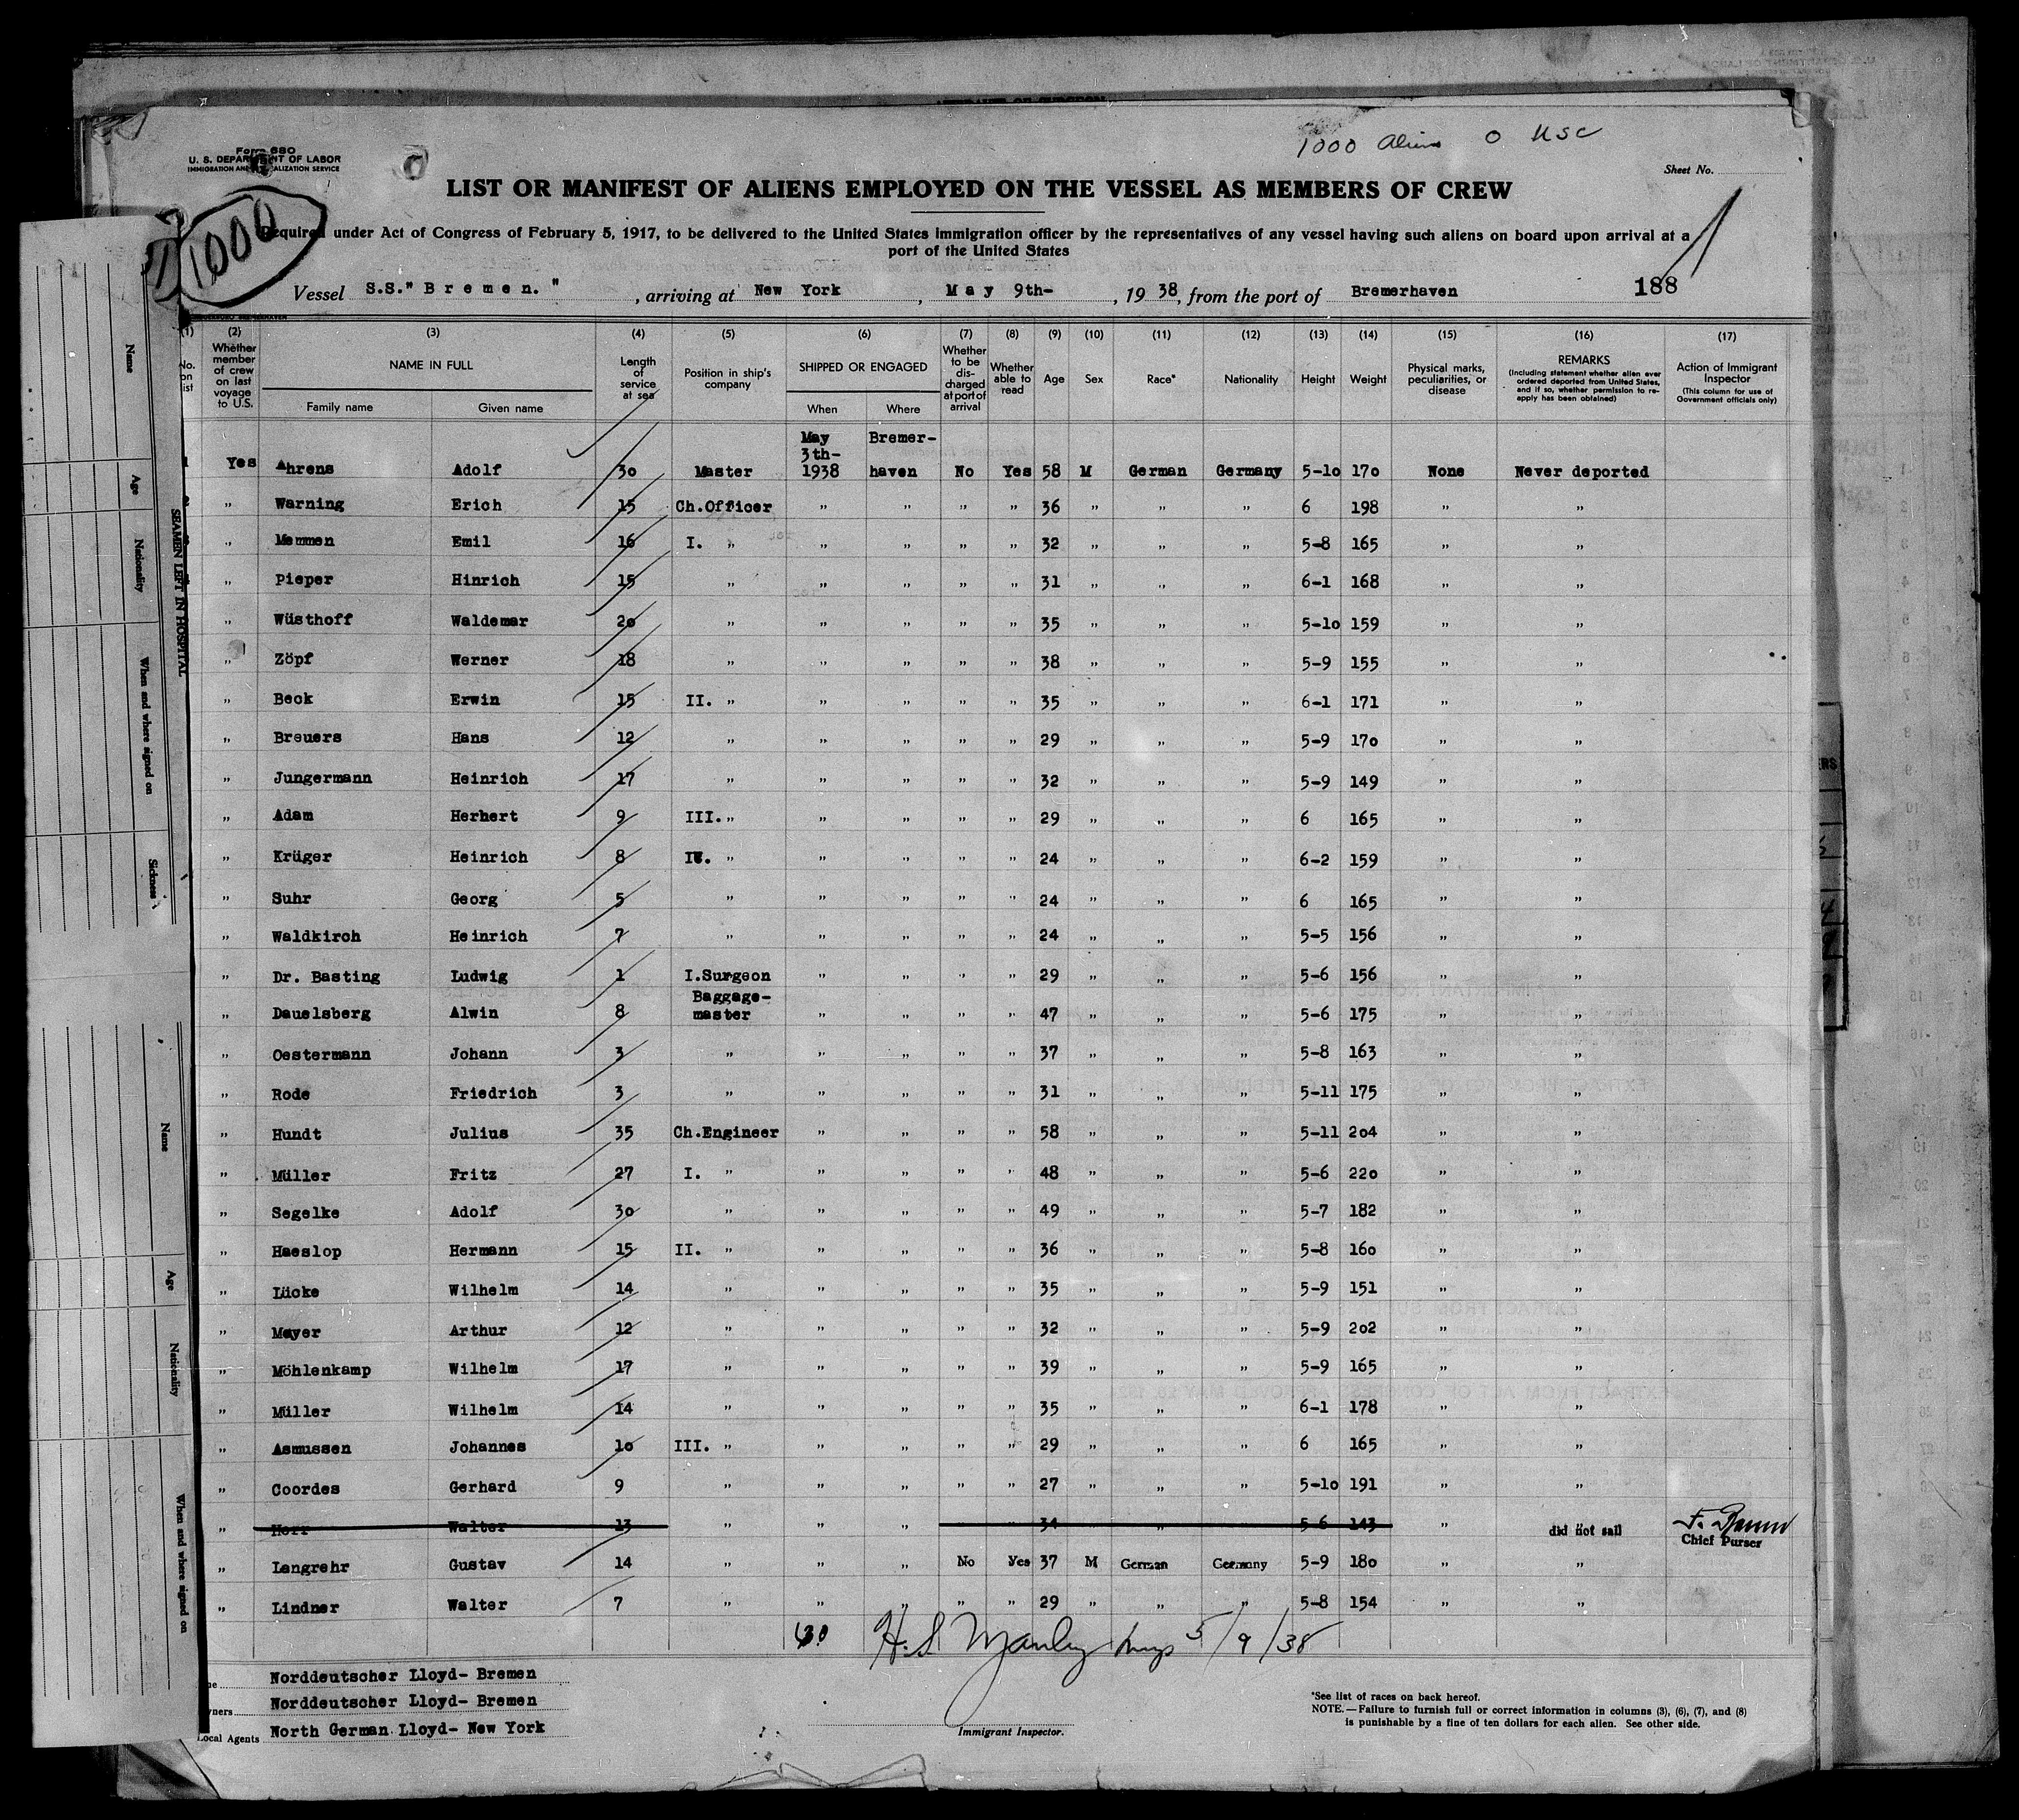 1000 Aliens 0 USC
Form 680
U. S. DEPARTMENT OF LABOR
IMMIGRATION AND NATURALIZATION SERVICE
Sheet No.
1000
LIST OR MANIFEST OF ALIENS EMPLOYED ON THE VESSEL AS MEMBERS OF CREW
Required under Act of Congress of February 5, 1917, to be delivered to the United States Immigration officer by the representatives of any vessel having such aliens on board upon arrival at a
port of the United States
Vessel S.S."Bremen." , arriving at New York , May 9th- , 19 38, from the port of Bremerhaven 188
(1) (2) (3) (4) (5) (6) (7) (8) (9) (10) (11) (12) (13) (14) (15) (16) (17)
No. on list
Whether member of crew on last voyage to U.S.
NAME IN FULL
Family name Given name
Length of service at sea
Position in ship's company
SHIPPED OR ENGAGED
When Where
Whether to be discharged at port of arrival
Whether able to read
Age Sex Race* Nationality Height Weight
Physical marks, peculiarities, or disease
REMARKS
(Including statement whether alien ever ordered deported from United States, and if so, whether permission to reapply has been obtained)
Action of Immigrant Inspector
(This column for use of Government officials only)
1 Yes Ahrens Adolf 30 Master May 3th- 1938 Bremer-haven No Yes 58 M German Germany 5-10 170 None Never deported
" Warning Erich 15 Ch.Officer " " " " 36 " " " 6 198 " "
" Memmen Emil 16 I. " " " " " 32 " " " 5-8 165 " "
" Pieper Hinrich 15 " " " " " 31 " " " 6-1 168 " "
" Wüsthoff Waldemar 20 " " " " " 35 " " " 5-10 159 " "
" Zöpf Werner 18 " " " " " 38 " " " 5-9 155 " "
" Beck Erwin 15 II. " " " " " 35 " " " 6-1 171 " "
" Breuers Hans 12 " " " " " 29 " " " 5-9 170 " "
" Jungermann Heinrich 17 " " " " " 32 " " " 5-9 149 " "
" Adam Herbert 9 III. " " " " " 29 " " " 6 165 " "
" Krüger Heinrich 8 IV. " " " " " 24 " " " 6-2 159 " "
" Suhr Georg 5 " " " " " 24 " " " 6 165 " "
" Waldkirch Heinrich 7 " " " " " 24 " " " 5-5 156 " "
" Dr. Basting Ludwig 1 I.Surgeon " " " " 29 " " " 5-6 156 " "
" Dauelsberg Alwin 8 Baggage-master " " " " 47 " " " 5-6 175 " "
" Oestermann Johann 3 " " " " " 37 " " " 5-8 163 " "
" Rode Friedrich 3 " " " " " 31 " " " 5-11 175 " "
" Hundt Julius 35 Ch.Engineer " " " " 58 " " " 5-11 204 " "
" Müller Fritz 27 I. " " " " " 48 " " " 5-6 220 " "
" Segelke Adolf 30 " " " " " 49 " " " 5-7 182 " "
" Haeslop Hermann 15 II. " " " " " 36 " " " 5-8 160 " "
" Lücke Wilhelm 14 " " " " " 35 " " " 5-9 151 " "
" Meyer Arthur 12 " " " " " 32 " " " 5-9 202 " "
" Möhlenkamp Wilhelm 17 " " " " " 39 " " " 5-9 165 " "
" Müller Wilhelm 14 " " " " " 35 " " " 6-1 178 " "
" Asmussen Johannes 10 III. " " " " " 29 " " " 6 165 " "
" Coordes Gerhard 9 " " " " " 27 " " " 5-10 191 " "
" Herr Walter 13 " " " " " 34 " " 5-6 143 " did not sail
Chief Purser
" Langrehr Gustav 14 " " " No Yes 37 M German Germany 5-9 180 " "
" Lindner Walter 7 " " " " " 29 " " " 5-8 154 " "
30 H. S. Manley Insp 5/9/38
Norddeutscher Lloyd- Bremen
Norddeutscher Lloyd- Bremen
Local Agents North German Lloyd- New York
Immigrant Inspector.
*See list of races on back hereof.
NOTE.—Failure to furnish full or correct information in columns (3), (6), (7), and (8)
is punishable by a fine of ten dollars for each alien. See other side.
SEAMEN LEFT IN HOSPITAL
Name Age Nationality When and where signed on Sickness
Name Age Nationality When and where signed on